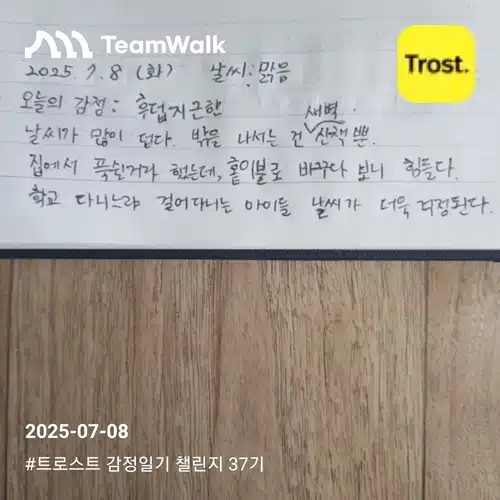 TeamWalk
Trost.
2025.7.8 (화) 날씨: 맑음
오늘의 감정: 후덥지근한
새벽
날씨가 많이 덥다. 밖을 나서는 건 산책 뿐.
집에서 푹쉰거라 했는데, 홑이불로 바꾸다 보니 힘들다.
학교 다니느랴 걸어다니는 아이들 날씨가 더욱 걱정된다.
2025-07-08
#트로스트 감정일기 챌린지 37기